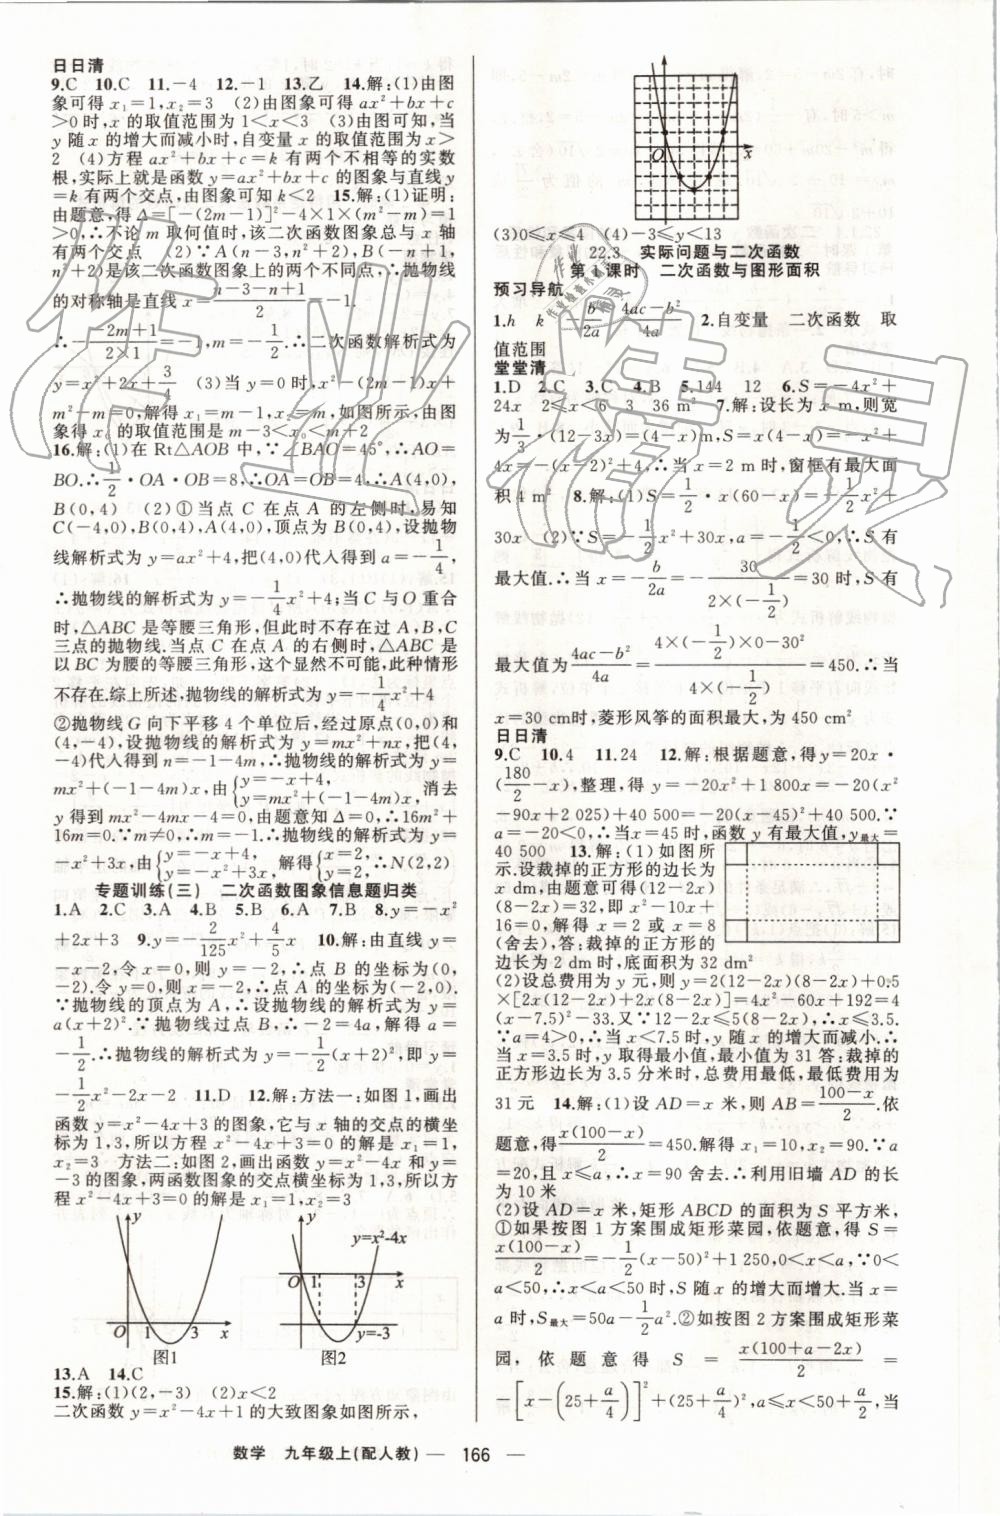 日日清
9.C 10.C 11.-4 12.-1 13.乙 14.解:(1)由图
象可得 x₁=1,x₂=3 (2)由图象可得 ax²+bx+c
>0时,x 的取值范围为 1<x<3 (3)由图可知,当
y 随 x 的增大而减小时,自变量 x 的取值范围为 x>
2 (4)方程 ax²+bx+c=k 有两个不相等的实数
根,实际上就是函数 y=ax²+bx+c 的图象与直线 y
=k 有两个交点,由图象可知 k<2 15.解:(1)证明:
由题意,得 Δ=[-(2m-1)]²-4×1×(m²-m)=1
>0,∴不论 m 取何值时,该二次函数图象总与 x 轴
有两个交点 (2)∵A(n-3,n²+2),B(-n+1,
n²+2)是该二次函数图象上的两个不同点,∴抛物线
的对称轴是直线 x=(n-3-n+1)/2=-1.
∴-(-2m+1)/(2×1)=-1,m=-1/2.∴二次函数解析式为
y=x²+2x+3/4 (3)当 y=0时,x²-(2m-1)x+
m²-m=0,解得 x₁=m-1,x₂=m,如图所示,由图
象得 x₀的取值范围是 m-3<x₀<m+2
16.解:(1)在 Rt△AOB 中,∵∠BAO=45°,∴AO=
BO.∴1/2·OA·OB=8,∴OA=OB=4,∴A(4,0),
B(0,4) (2)①当点 C 在点 A 的左侧时,易知
C(-4,0),B(0,4),A(4,0),顶点为 B(0,4),设抛物
线解析式为 y=ax²+4,把(4,0)代入得到 a=-1/4,
∴抛物线的解析式为 y=-1/4x²+4;当 C 与 O 重合
时,△ABC 是等腰三角形,但此时不存在过 A,B,C
三点的抛物线.当点 C 在点 A 的右侧时,△ABC 是
以 BC 为腰的等腰三角形,这个显然不可能,此种情形
不存在.综上所述,抛物线的解析式为 y=-1/4x²+4
②抛物线 G 向下平移 4 个单位后,经过原点(0,0)和
(4,-4),设抛物线的解析式为 y=mx²+nx,把(4,
-4)代入得到 n=-1-4m,∴抛物线的解析式为 y=
mx²+(-1-4m)x,由{y=-x+4, y=mx²+(-1-4m)x, 消去
y 得到 mx²-4mx-4=0,由题意知 Δ=0,∴16m²+
16m=0.∵m≠0,∴m=-1.∴抛物线的解析式为 y=
-x²+3x,由{y=-x+4, y=-x²+3x, 解得{x=2, y=2, ∴N(2,2)
专题训练(三) 二次函数图象信息题归类
1.A 2.C 3.A 4.B 5.B 6.A 7.B 8.y=-x²
+2x+3 9.y=-2/125x²+4/5x 10.解:由直线 y=
-x-2,令 x=0,则 y=-2,∴点 B 的坐标为(0,
-2).令 y=0,则 x=-2,∴点 A 的坐标为(-2,0).
∵抛物线的顶点为 A,∴设抛物线的解析式为 y=
a(x+2)².∵抛物线过点 B,∴-2=4a,解得 a=
-1/2.∴抛物线的解析式为 y=-1/2(x+2)²,即 y=
-1/2x²-2x-2 11.D 12.解:方法一:如图1,画出
函数 y=x²-4x+3 的图象,它与 x 轴的交点的横坐
标为 1,3,所以方程 x²-4x+3=0 的解是 x₁=1,
x₂=3 方法二:如图2,画出函数 y=x²-4x 和 y=
-3 的图象,两函数图象的交点横坐标为 1,3,所以方
程 x²-4x+3=0 的解是 x₁=1,x₂=3
y
O 1 3 x
图1
y
y=x²-4x
O 1 3 x
y=-3
图2
13.A 14.C
15.解:(1)(2,-3) (2)x<2
二次函数 y=x²-4x+1 的大致图象如图所示,
O x
(3)0≤x≤4 (4)-3≤y<13
22.3 实际问题与二次函数
第1课时 二次函数与图形面积
预习导航
1.h k -b/2a (4ac-b²)/4a 2.自变量 二次函数 取
值范围
堂堂清
1.D 2.C 3.C 4.B 5.144 12 6.S=-4x²+
24x 2≤x<6 3 36 m² 7.解:设长为 x m,则宽
为1/3·(12-3x)=(4-x)m,S=x(4-x)=-x²+
4x=-(x-2)²+4,∴当 x=2 m 时,窗框有最大面
积 4 m² 8.解:(1)S=1/2·x(60-x)=-1/2x²+
30x (2)∵S=-1/2x²+30x,a=-1/2<0,∴S 有
最大值.∴当 x=-b/2a=-30/(2×(-1/2))=30 时,S 有
最大值为(4ac-b²)/4a=(4×(-1/2)×0-30²)/(4×(-1/2))=450.∴当
x=30 cm时,菱形风筝的面积最大,为 450 cm²
日日清
9.C 10.4 11.24 12.解:根据题意,得 y=20x·
(180/2-x),整理,得 y=-20x²+1 800x=-20(x²
-90x+2 025)+40 500=-20(x-45)²+40 500.∵
a=-20<0,∴当 x=45 时,函数 y 有最大值,y最大=
40 500 13.解:(1)如图所
示.设裁掉的正方形的边长为
x dm,由题意可得(12-2x)
(8-2x)=32,即 x²-10x+
16=0,解得 x=2 或 x=8
(舍去),答:裁掉的正方形的
边长为 2 dm 时,底面积为 32 dm²
(2)设总费用为 y 元,则 y=2(12-2x)(8-2x)+0.5
×[2x(12-2x)+2x(8-2x)]=4x²-60x+192=4
(x-7.5)²-33.又∵12-2x≤5(8-2x),∴x≤3.5.
∵a=4>0,∴当 x<7.5 时,y 随 x 的增大而减小.∴
当 x=3.5 时,y 取得最小值,最小值为 31 答:裁掉的
正方形边长为 3.5 分米时,总费用最低,最低费用为
31 元 14.解:(1)设 AD=x 米,则 AB=(100-x)/2.依
题意,得x(100-x)/2=450.解得 x₁=10,x₂=90.∵a
=20,且 x≤a,∴x=90 舍去.∴利用旧墙 AD 的长
为 10 米
(2)设 AD=x 米,矩形 ABCD 的面积为 S 平方米,
①如果按图 1 方案围成矩形菜园,依题意,得 S=
x(100-x)/2=-1/2(x-50)²+1 250,0<x<a,∵0<
a<50,∴x<a<50 时,S 随 x 的增大而增大.当 x=
a 时,S最大=50a-1/2a².②如按图 2 方案围成矩形菜
园,依题意得 S=x(100+a-2x)/2=
-[x-(25+a/4)]²+(25+a/4)²,a≤x<50+a/2,当
数学 九年级上(配人教) — 166 —
作业精灵